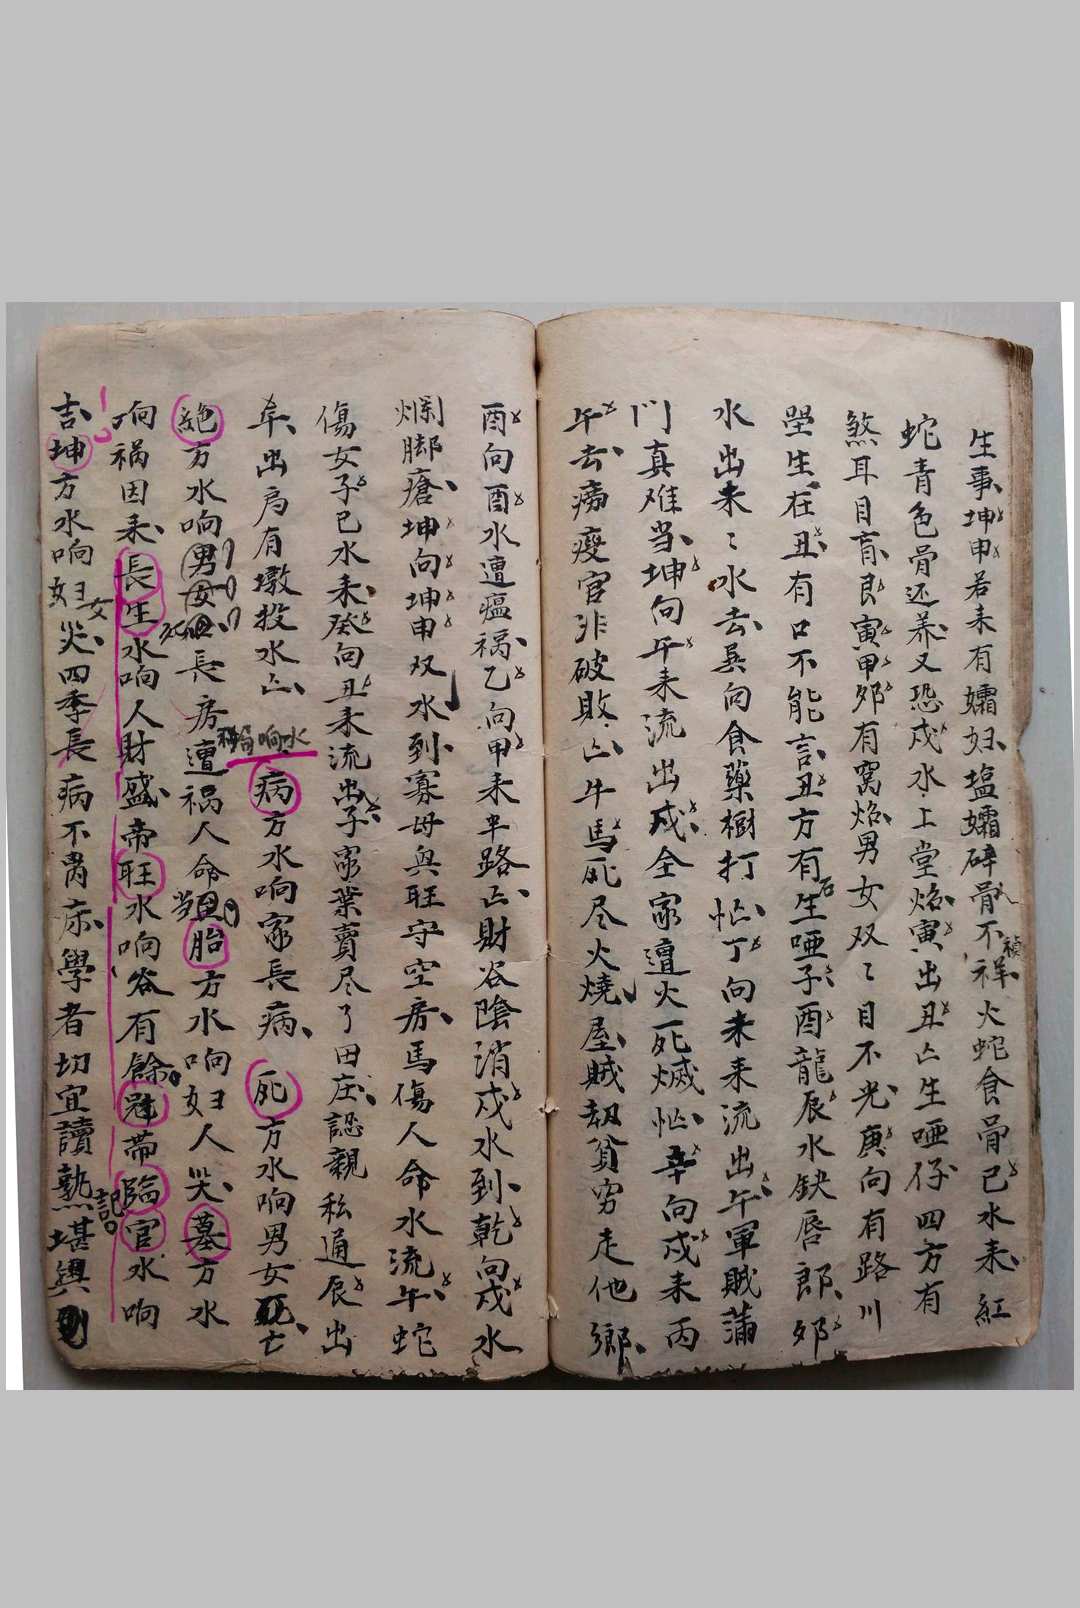 生事坤申若耒有孀妇塩孀碎骨不祥火蛇食骨巳水耒紅
蛇青色骨还养又恐戍水上堂焰寅出丑亡生哑仔四方有
煞耳目盲艮寅甲夘有窝焰男女双々目不光庚向有路川
堂生在丑有口不能言丑方有生哑子酉龍辰水缺唇郎夘
水出未々水去巽向食藥樹打忙丁向未耒流出午軍賊蒲
门真难当坤向午耒流出戍全家遭火死烕忙辛向戍耒丙
午去痨瘦官非破敗亡牛馬死尽火燒屋賊刼貧穷走他鄉
酉向酉水遭瘟禍乙向甲耒半路亡財谷陰消戍水到乾向戍水
爛脚瘡坤向坤申双水到寡母與旺守空房馬傷人命水流午蛇
傷女子巳水耒癸向丑耒流出子家業賣尽了田庄認親私通辰出
年出局有墩投水亡
响水
病方水响家長病死方水响男女死亡
絶方水响男女長房遭禍人命胎方水响妇人哭墓方水
响祸因耒長生水响人財盛帝旺水响谷有餘冠帶臨官水响
吉坤方水响妇女災四季長病不离床學者切宜讀熟記堪輿